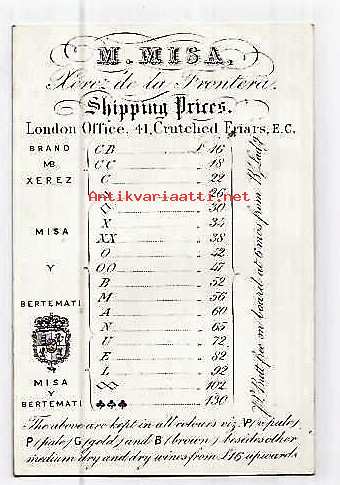 M. MISA,
Xerez de la Frontera.
Shipping Prices.
London Office, 41, Crutched Friars, E.C.
BRAND
MB
XEREZ
MISA
Y
BERTEMATI
MISA
Y
BERTEMATI
CB £ 16
CC " 18
C " 22
" 26
" 30
X " 34
XX " 38
O " 42
OO " 47
B " 52
M " 56
A " 60
N " 65
U " 72
E " 82
L " 92
◇◇ " 102
♣♣♣ " 130
Antikvariaatti.net
Pr. Butt free on board at 6 mos from B/Lading
The above are kept in all colours viz. VP (v. pale)
P (pale) G (gold) and B (brown) besides other
medium dry and dry wines from £16 upwards